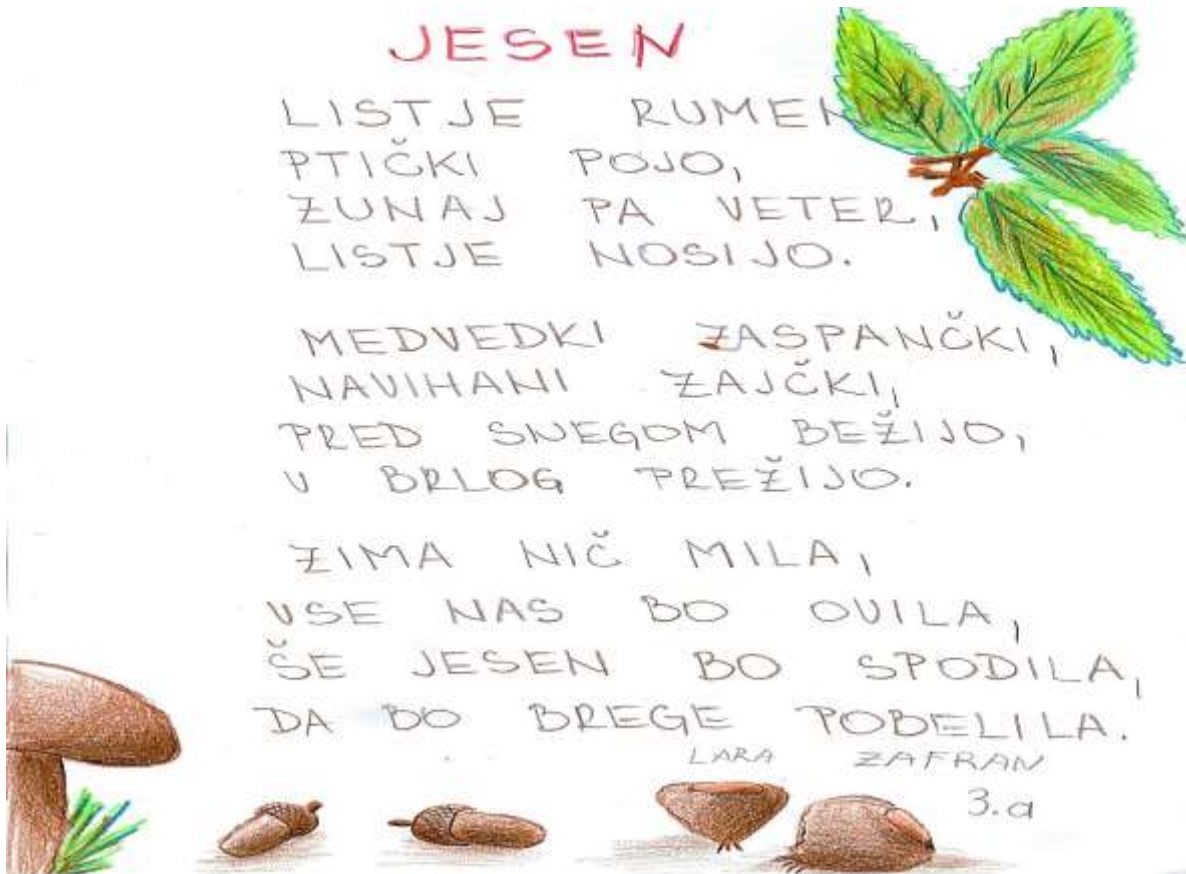 JESEN
LISTJE
PTIČKI POJO,
ZUNAJ PA VETER,
LISTJE NOSIJO.
MEDVEDKI ZASPANČKI,
NAVIHANI ZAJČKI,
PRED SNEGOM BEŽIJO,
V BRLOG PREŽIJO.
ZIMA NIČ MILA,
VSE NAS BO OVILA,
ŠE JESEN BO SPODILA,
DA BO BREGE POBELILA.
LARA ZAFRAN
3.a